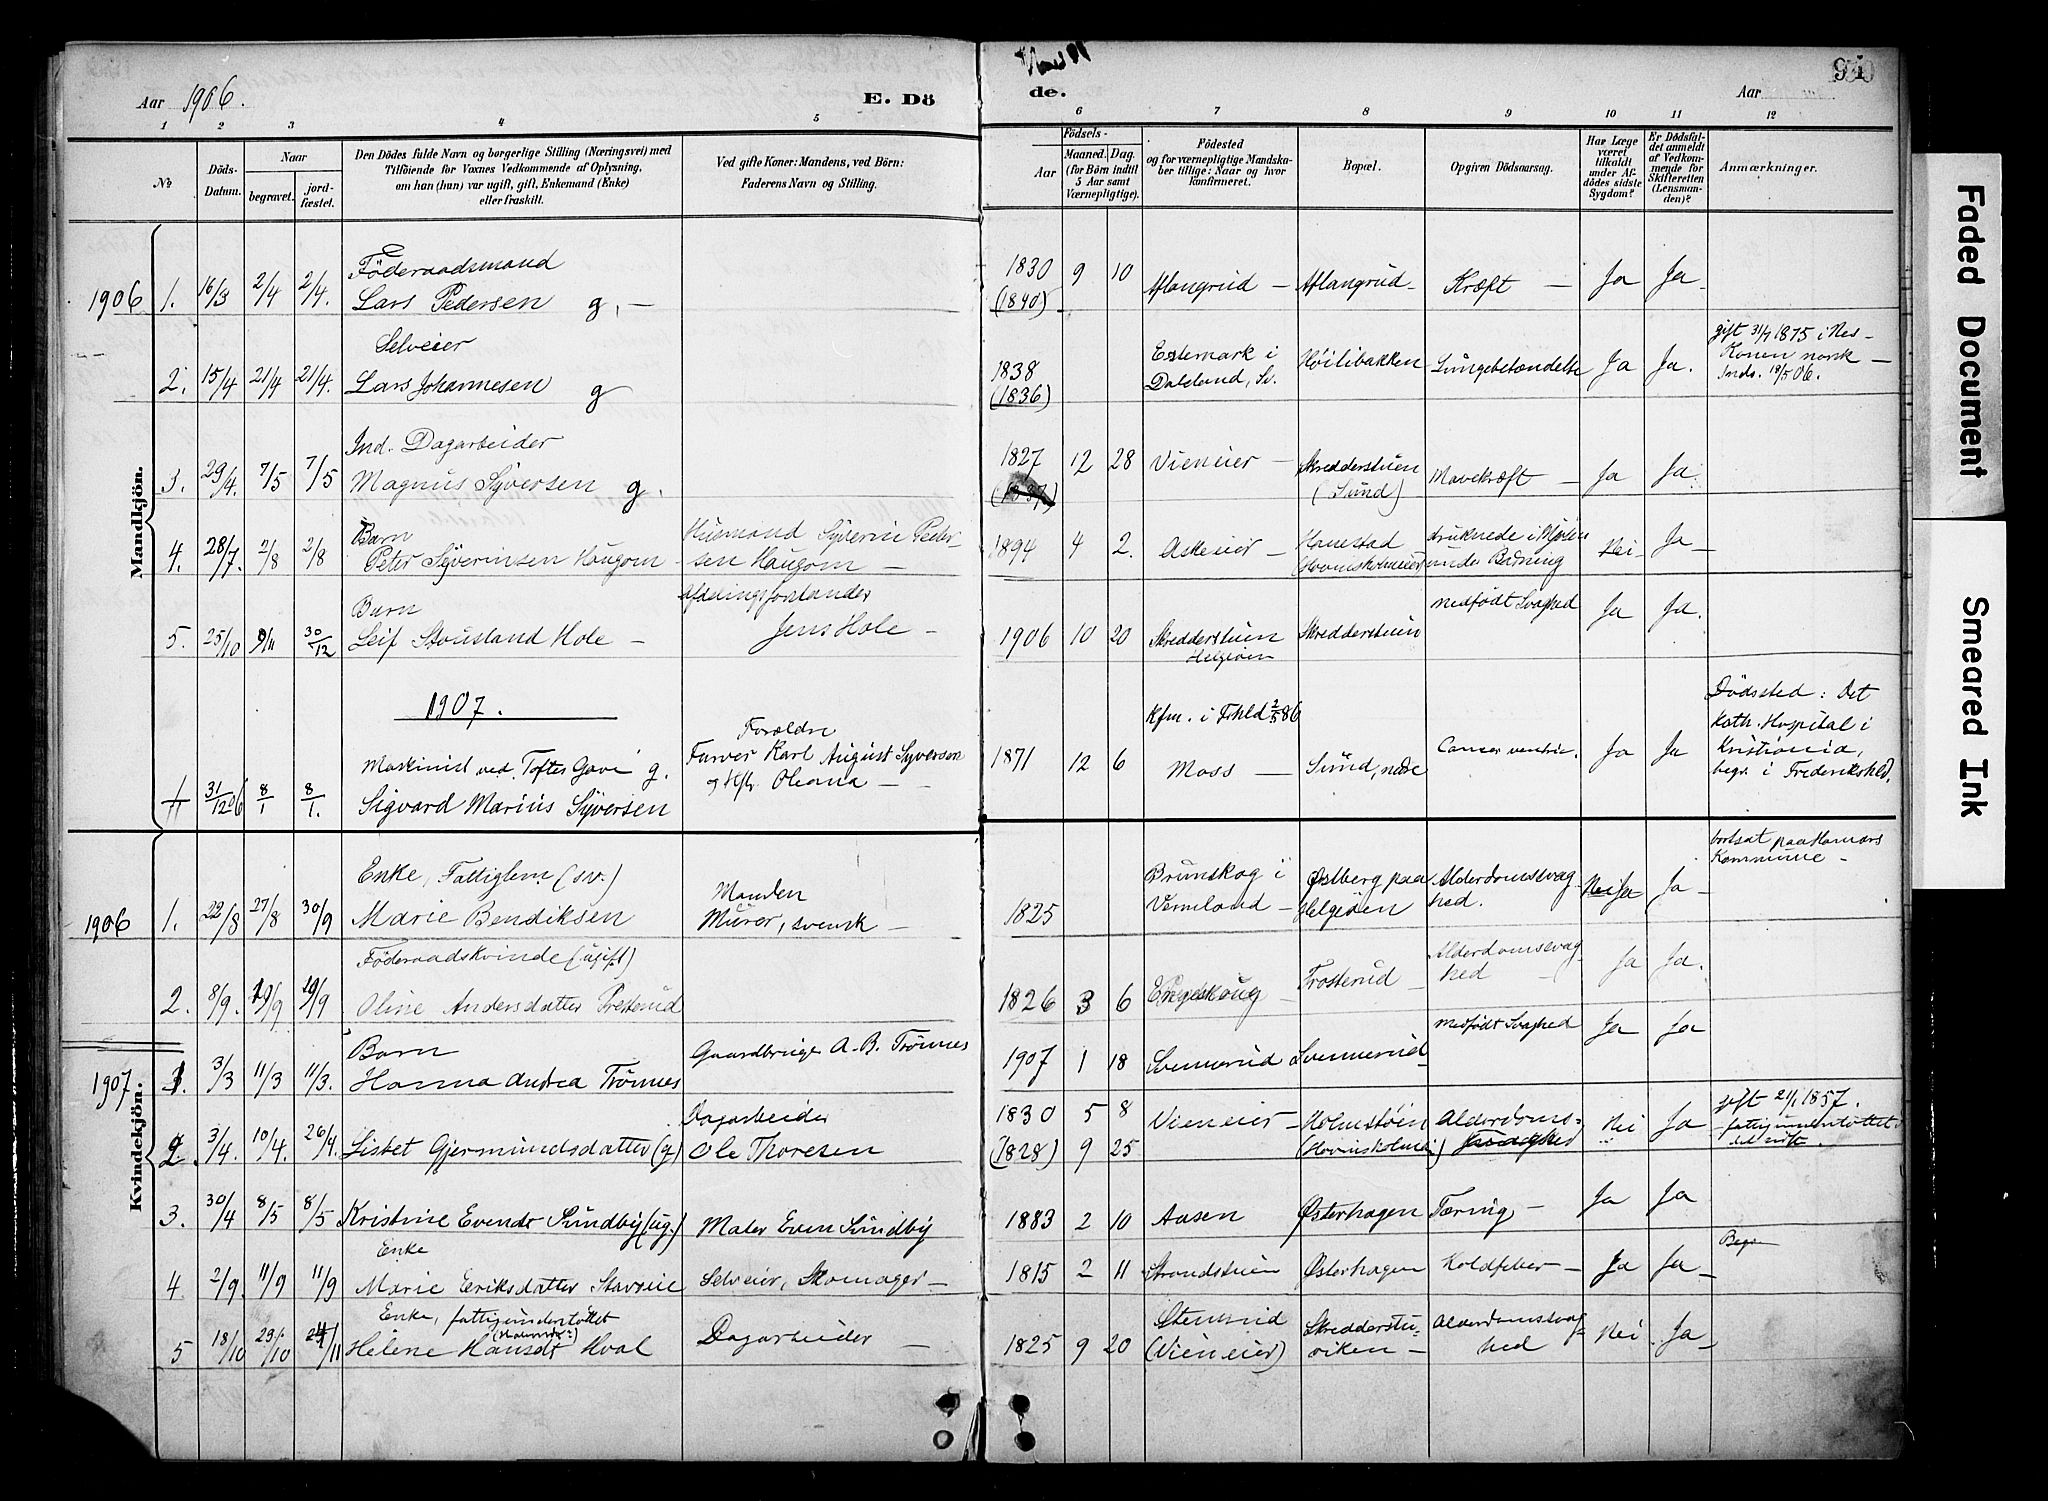 Aar 1906.
E. Dö
de.
Aar
91
1 2 3 4 5 6 7 8 9 10 11 12
No
Döds-Datum.
Naar
begravet.
jord-fæstet.
Den Dödes fulde Navn og borgerlige Stilling (Næringsvei) med
Tilföiende for Voxnes Vedkommende af Oplysning,
om han (hun) var ugift, gift, Enkemand (Enke)
eller fraskilt.
Ved gifte Koner: Mandens, ved Börn:
Faderens Navn og Stilling.
Födsels-
Aar
Maaned. Dag.
(for Börn indtil
5 Aar samt
Værnepligtige).
Födested
og for værnepligtige Mandska-
ber tillige: Naar og hvor
konfirmeret.
Bopæl.
Opgiven Dödsaarsag.
Har Læge
været
tilkaldt
under Af-
dödes sidste
Sygdom?
Er Dödsfal-
det anmeldt
af Vedkom-
mende for
Skifteretten
(Lensman-
den)?
Anmærkninger.
Mandkjön.
1906 1. 16/3 2/4 2/4. Föderaadsmand
Lars Pedersen g. —
1830 (1840) 9 10 Aflangrud — Aflangrud — Kræft — Ja Ja —
2. 15/4 21/4 21/4. Selveier
Lars Johannesen g
1838 (1836) Estemark i Dalsland, Sv. Höilibakken Lungebetændelse Ja Ja. gift 31/7 1875 i Nes —
Konen norsk —
Inds. 18/5 06.
3. 29/4. 7/5 7/5 Ind. Dagarbeider
Magnus Syversen g.
1827 12 28 Vieneier — Skredderstuen (Sund) Mavekræft — Ja Ja.
4. 28/7. 2/8 2/8 Barn
Peter Syverinsen Haugom — Husmand Syverin Peder-
sen Haugom —
1894 4 2. Askeier — Hanestad (Hovinsholmeier) druknede i Mjösen under Badning Nei — Ja —
5. 25/10 9/11 30/12 Barn
Leif Stousland Hole — Afdelingsforstander
Jens Hole —
1906 10 20 Skredderstuen Helgeöen Skredderstuen medfödt Svaghed Ja Ja.
1907.
31/12 06 8/1 8/1. Maskinist ved Toftes Gave g.
Sigvard Marius Syversen
Forældre
Farver Karl August Syversen
og Hst. Oleana —
1871 12 6 Kfm. i Frhld 2/5 86
Moss — Sund, nedre Cancer ventric. Ja Ja Dödssted: Det
kath. Hospital i
Kristiania,
begr. i Frederikshld.
Kvindekjön.
1906 1. 22/8 27/8 30/9 Enke, Fattiglem (sv.)
Marie Bendiksen Manden
Murer, svensk —
1825 Brunskog i Vermland — Østberg paa Helgeöen Alderdomssvag-
hed. Nei Ja Ja — bortsat paa Hamars
Kommune —
2. 8/9. 19/9 29/9 Föderaadskvinde (ugift)
Oline Andersdatter Presterud
1826 3 6 Engeskoug Trosterud — Alderdomssvag-
hed — Ja Ja.
1907 1. 3/3 11/3 11/3. Barn
Hanna Andrea Trönnes Gaardbruger A. B. Trönnes
1907 1 18 Svennerud Svennerud — medfödt Svaghed Ja Ja
2. 3/4. 10/4. 26/4. Lisbet Gjermundsdatter (g) Dagarbeider
Ole Thoresen
1830 5 8
(1828) 9 25 Vieneier — Holmstöien (Hovinsholmei) Alderdoms-
svaghed Nei Ja gift 21/1 1857.
fattigunderstöttet
3. 30/4 8/5 8/5 Kristine Evensdt Sundby (ug.) Maler Even Sundby
1883 2 10 Aasen Østerhagen Tæring — Ja Ja
4 2/9. 11/9 11/9 Enke
Marie Eriksdatter Stavseie Selveier, Skomager —
1815 2 11 Strandstuen Østerhagen Koldfeber — Ja Ja — Begr
5 18/10 23/10 24/11 Enke, fattigunderstöttet
Helene Hansdt Hval Dagarbeider —
1825 9 20 Stenerud (Vieneier) Skredderstu-
viken — Alderdomssvag-
hed Nei Ja —
Faded Document
Smeared Ink